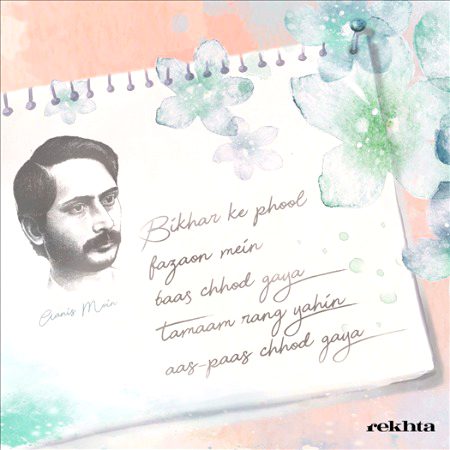 Bikhar ke phool
fazaon mein
baas chhod gaya
tamaam rang yahin
aas-paas chhod gaya
Aanis Moin
rekhta